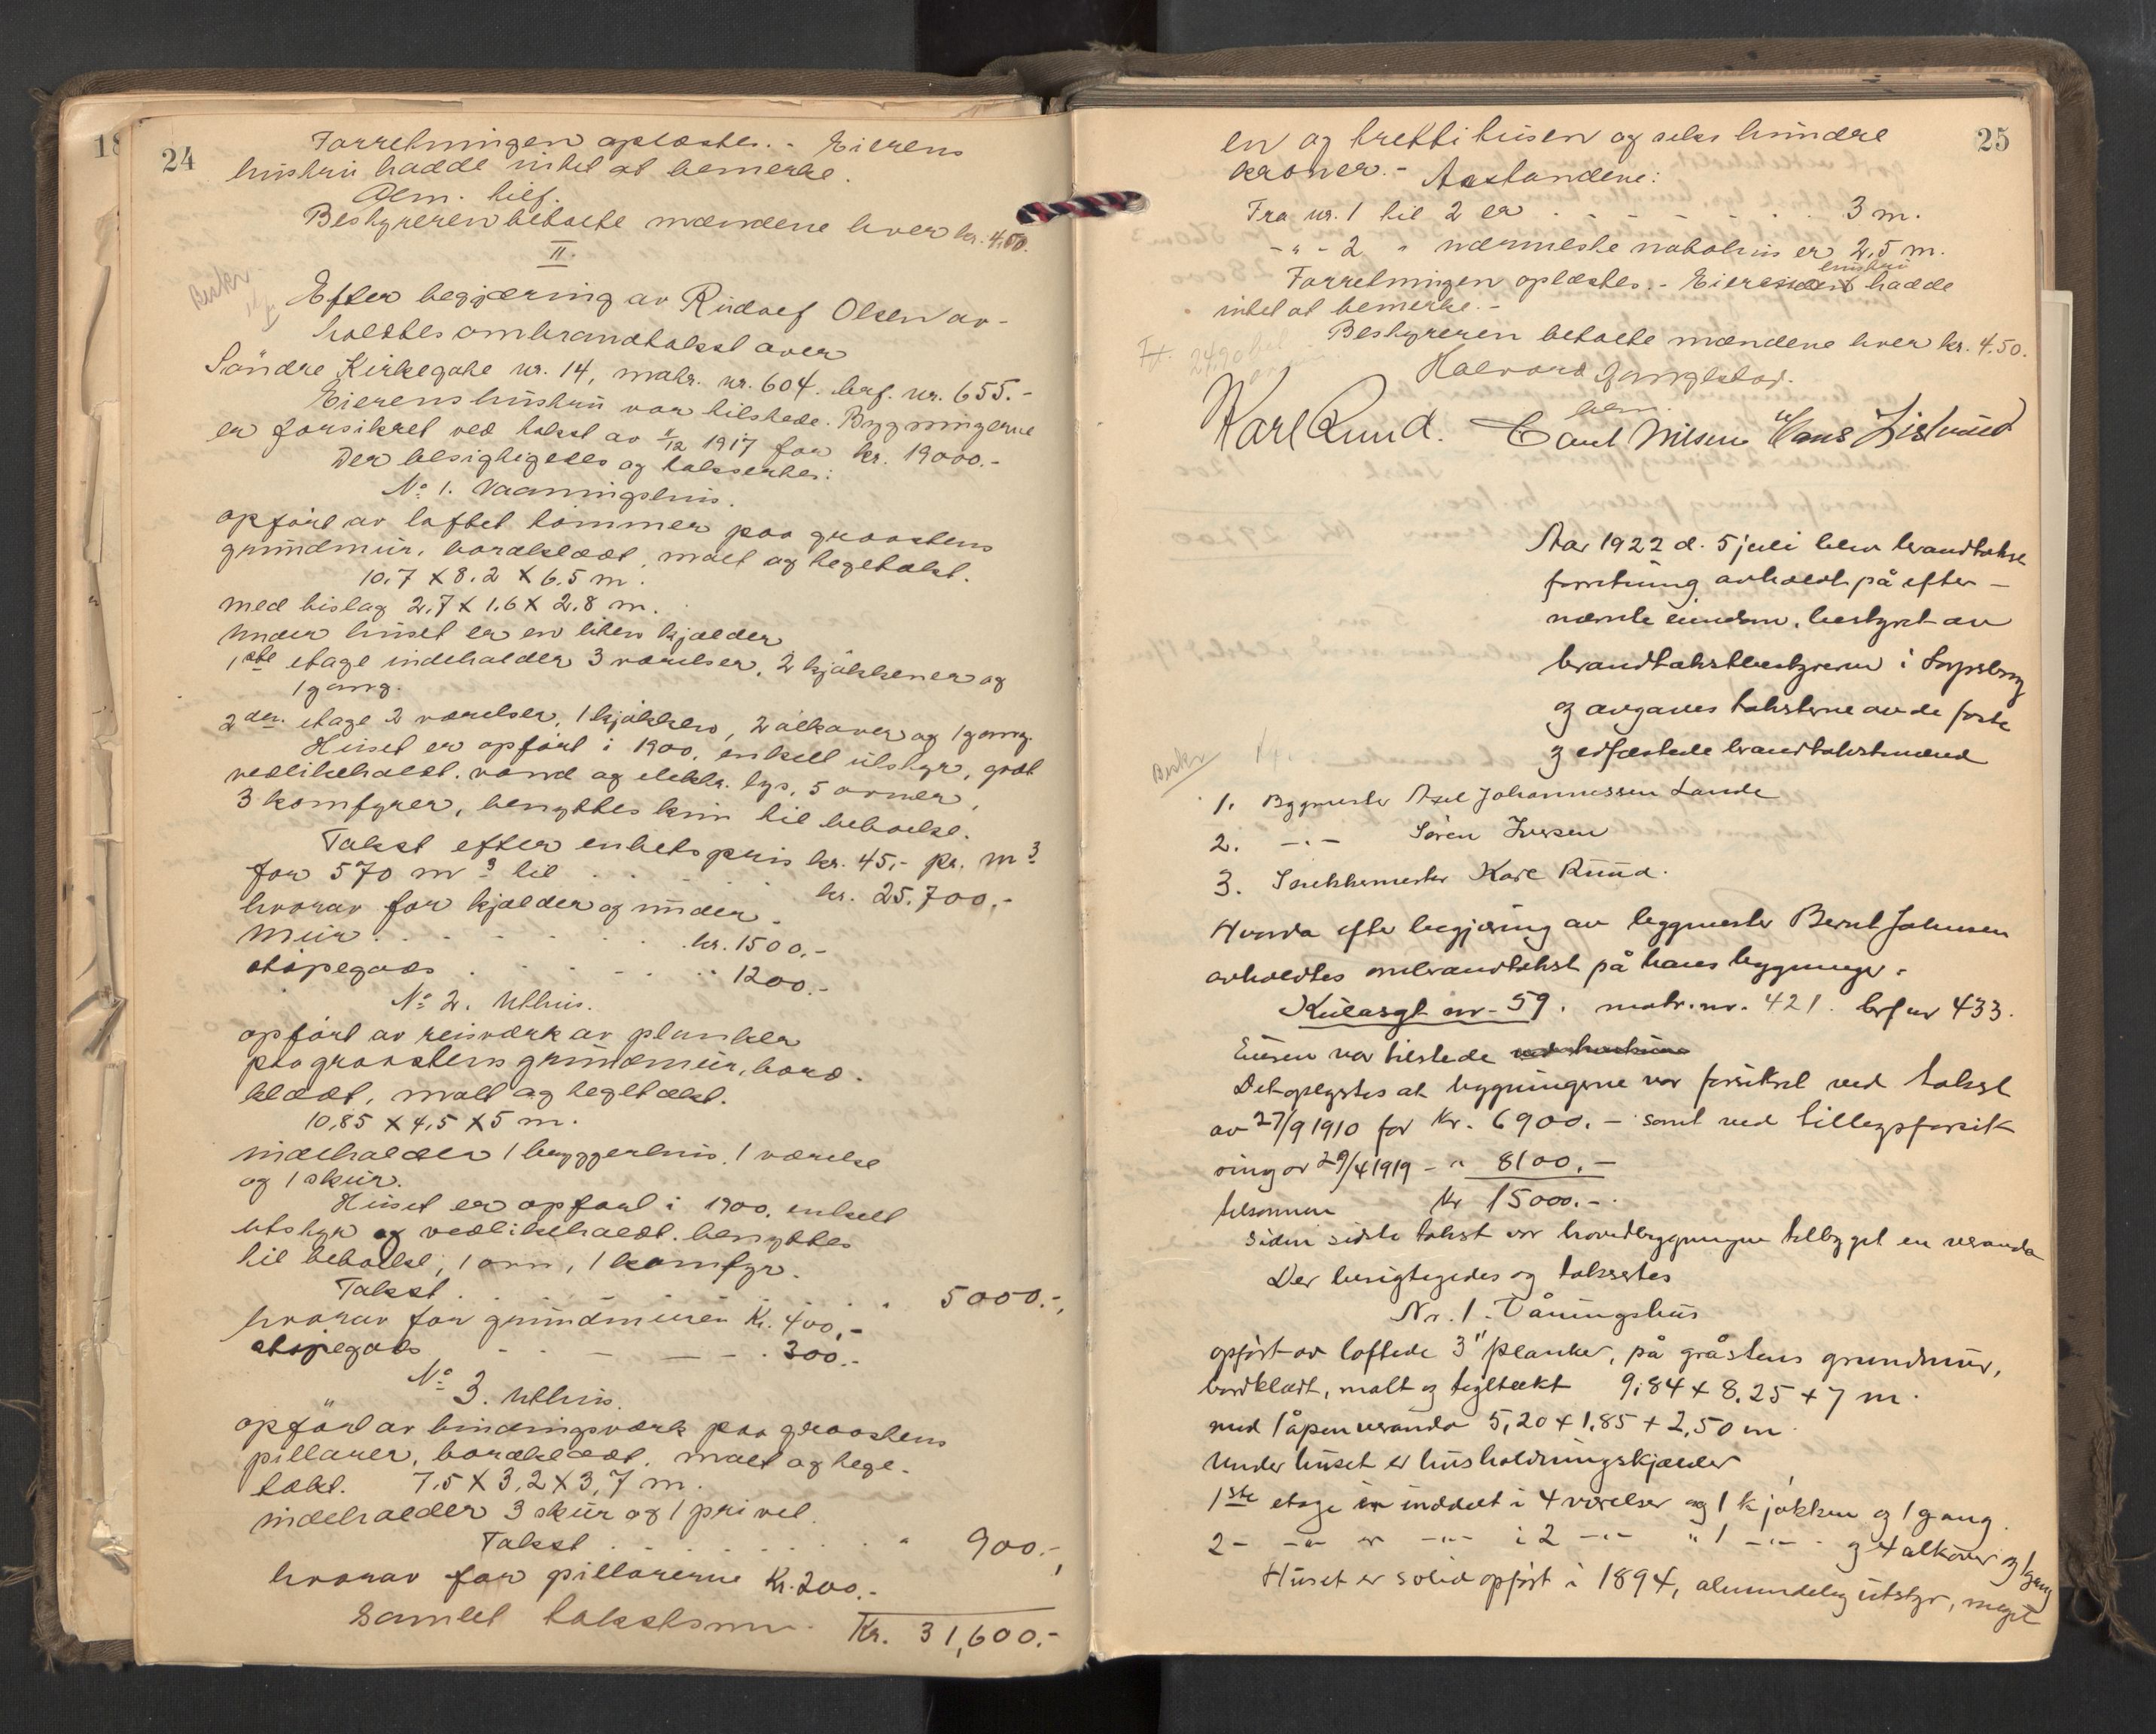 18
24
Forretningen oplæstes. - Eierens
hustru hadde intet at bemerke.
Alm. tilf.
Bestyreren betalte mændene hver kr. 4.50.
II.
Beskr.
Efter begjæring av Rudolf Olsen av-
holdtes ombrandtakst over
Søndre Kirkegate nr. 14, matr. nr. 604. brf. nr. 655.-
Eierens hustru var tilstede. Bygningerne
er forsikret ved takst av 11/12 1917 for kr. 19000.-
Der besigtigedes og taksertes:
No 1. Vaaningshus.
opført av laftet tømmer paa graastens
grundmur, bordklædt, malt og tegltækt.
10,7 X 8.2 X 6.5 m.
med bislag 2.7 X 1.6 X 2.8 m.
Under huset er en liten kjælder
1ste etage indeholder 3 værelser, 2 kjøkkener og
1 gang.
2den etage 2 værelser, 1 kjøkken, 2 alkover og 1 gang.
Huset er opført i 1900, enkelt utstyr, godt
vedlikeholdt. vand og elektr. lys, 5 ovner,
3 komfyrer, benyttes kun til beboelse.
Takst efter enhetspris kr. 45,- pr. m3
for 570 m3 til . . . . kr. 25.700.-
hvorav for kjælder og under-
mur . . . . . . . kr. 1500.-
støpegods . . . . . . " 1200.-
No 2. Uthus.
opført av reisverk av planker
paa graastens grundmur, bord-
klædt, malt og teglt ækt.
10,85 X 4,5 X 5 m.
indeholder 1 bryggerhus, 1 værelse
og 1 skur.
Huset er opført i 1900, enkelt
utstyr og vedlikeholdt. benyttes
til beboelse, 1 ovn, 1 komfyr.
Takst . . . . . . . " 5000.-,
hvorav for grundmuren Kr. 400,-
støpegods - - - - - 300.-
No 3. Uthus.
opført av bindingsverk paa graastens
pillarer, bordklædt, malt og tegl-
tækt. 7,5 X 3,2 X 3,7 m.
indeholder 3 skur og 1 privet.
Takst . . . . . . . " 900.-,
hvorav for pillarerne Kr. 200.-
Samlet takstsum Kr. 31,600.-
25
en og tretti tusen og seks hundre
kroner. - Avstandene:
Fra nr. 1 til 2 er . . . . . . . 3 m.
- " - 2 " nærmeste nabohus er 2,5 m.
hustru
Forretningen oplæstes. - Eierens hadde
intet at bemerke. -
Bestyreren betalte mændene hver kr. 4.50.
Halvord Gangestad.
Karl Ruud. Carl Nilsen Hans Zislund
Aar 1922 d. 5 juli blev brandtakst
forretning avholdt på efter-
nævnte eiendom, bestyret av
brandtakstbestyreren i Sarpsborg
og avgaves taksterne av de faste
og edfæstede brandtakstmænd
Beskr
1. Byggmester Axel Johannessen Lande
2. - " - Søren Iversen
3. Snekkermester Karl Ruud.
Hvorda efter begjæring av byggmester Bernt Johnsen
avholdtes ombrandtakst på hans bygninger.
Kulåsgt nr. 59. matr. nr. 421. brf nr 433.
Eieren var tilstede
Det oplystes at bygningerne var forsikret ved takst
av 27/9 1910 for Kr. 6900. - samt ved tillægsforsik
ring av 29/4 1919 - " 8100.-
tilsammen Kr 15000.-
Siden sidste takst var hovedbygningen tilbygget en veranda
Der besigtigedes og taksertes
Nr. 1. Våningshus
opført av laftede 3" planker, på gråstens grundmur,
bordklædt, malt og tegltækt 9,84 + 8.25 + 7 m.
med 1 åpen veranda 5,20 + 1.85 + 2,50 m
Under huset er husholdningskjælder
1ste etage er inddelt i 4 værelser og 1 kjøkken og 1 gang.
2 - - " - er - " - i 2 - " - " 1 - " - og 4 alkover og 1 gang
Huset er solid opført i 1894, almindelig utstyr, meget